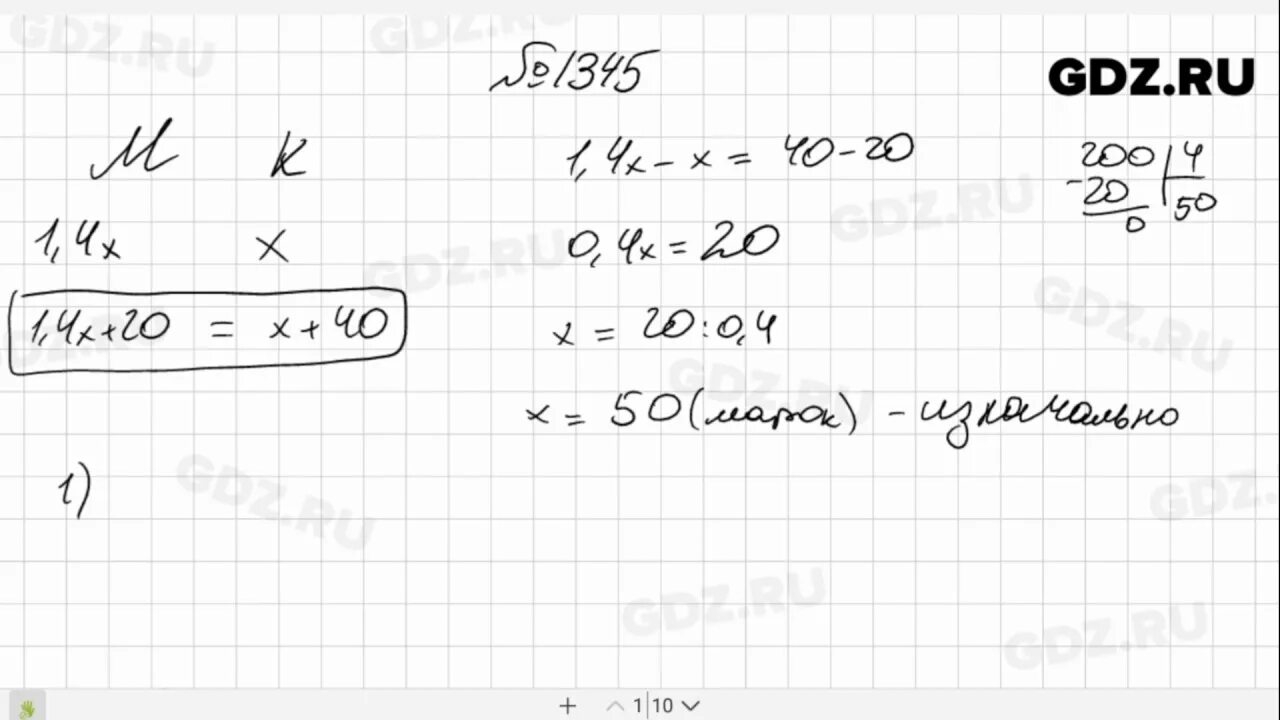 №1345
GDZ.RU
М К
1,4х х
1,4х+20 = х+40
1,4х - х = 40-20
0,4х = 20
х = 20:0,4
х = 50 (марок) - изначально
200 | 4
-20 50
0
1)
GDZ.RU
GDZ.RU
GDZ.RU
GDZ.RU
GDZ.RU
GDZ.RU
GDZ.RU
GDZ.RU
GDZ.RU
GDZ.RU
GDZ.RU
+ 1 | 10